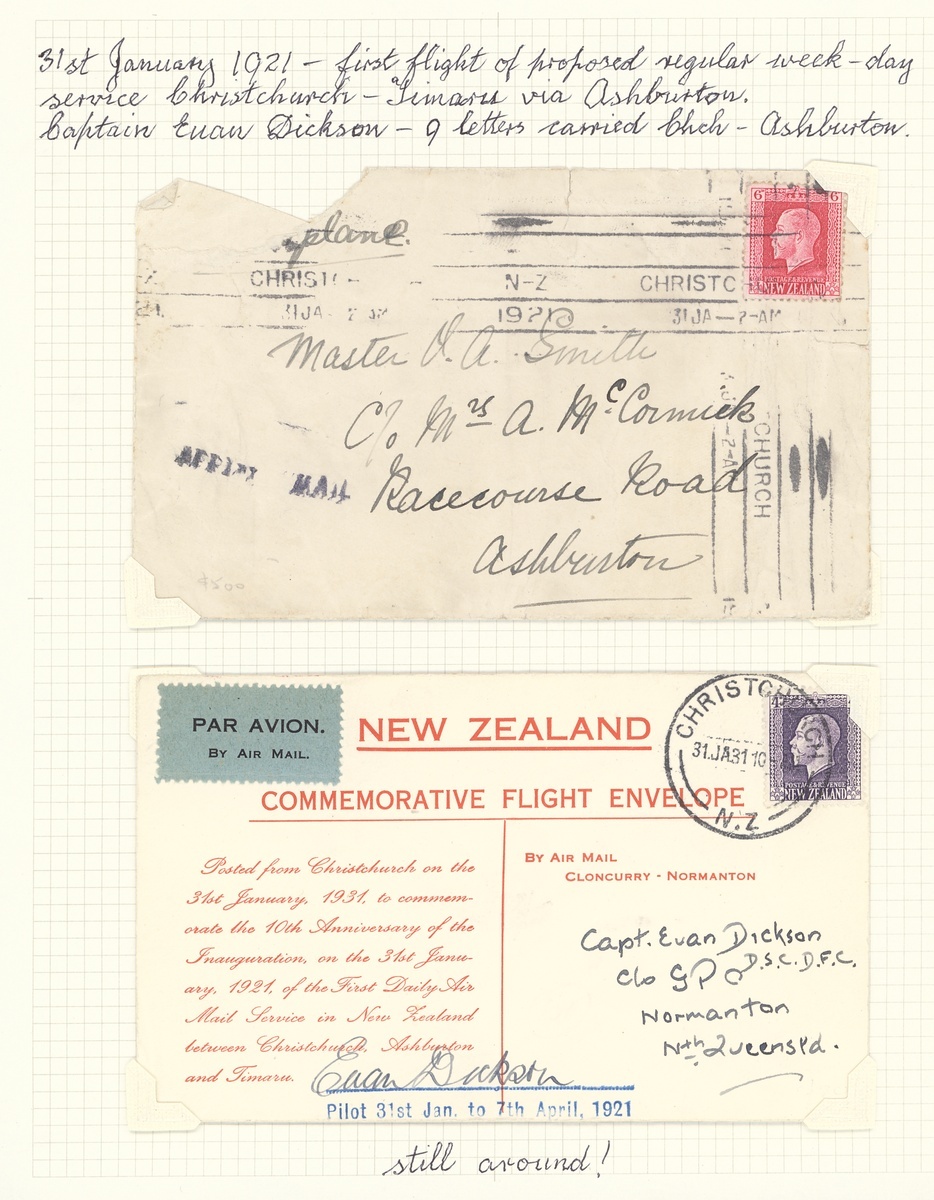 31st January 1921 – first flight of proposed regular week-day
service Christchurch – Timaru via Ashburton.
Captain Euan Dickson – 9 letters carried Chch – Ashburton.
plane.
6 6
POSTAGE & REVENUE
NEW ZEALAND
CHRIST N-Z CHRISTC
31 JA 1921 31 JA — 2-AM
Master A. Smith
C/o Mrs A. McCormick
Racecourse Road
Ashburton
MAIL
CHURCH
2-AM
$500
PAR AVION.
BY AIR MAIL.
NEW ZEALAND
COMMEMORATIVE FLIGHT ENVELOPE
CHRISTCHURCH
31.JA31 10
N.Z
POSTAGE & REVENUE
NEW ZEALAND
Posted from Christchurch on the
31st January, 1931, to commem-
orate the 10th Anniversary of the
Inauguration, on the 31st Janu-
ary, 1921, of the First Daily Air
Mail Service in New Zealand
between Christchurch, Ashburton
and Timaru.
Euan Dickson
Pilot 31st Jan. to 7th April, 1921
BY AIR MAIL
CLONCURRY - NORMANTON
Capt. Euan Dickson
D.S.C. D.F.C.
C/o GPO
Normanton
Nth Queensl'd.
still around!